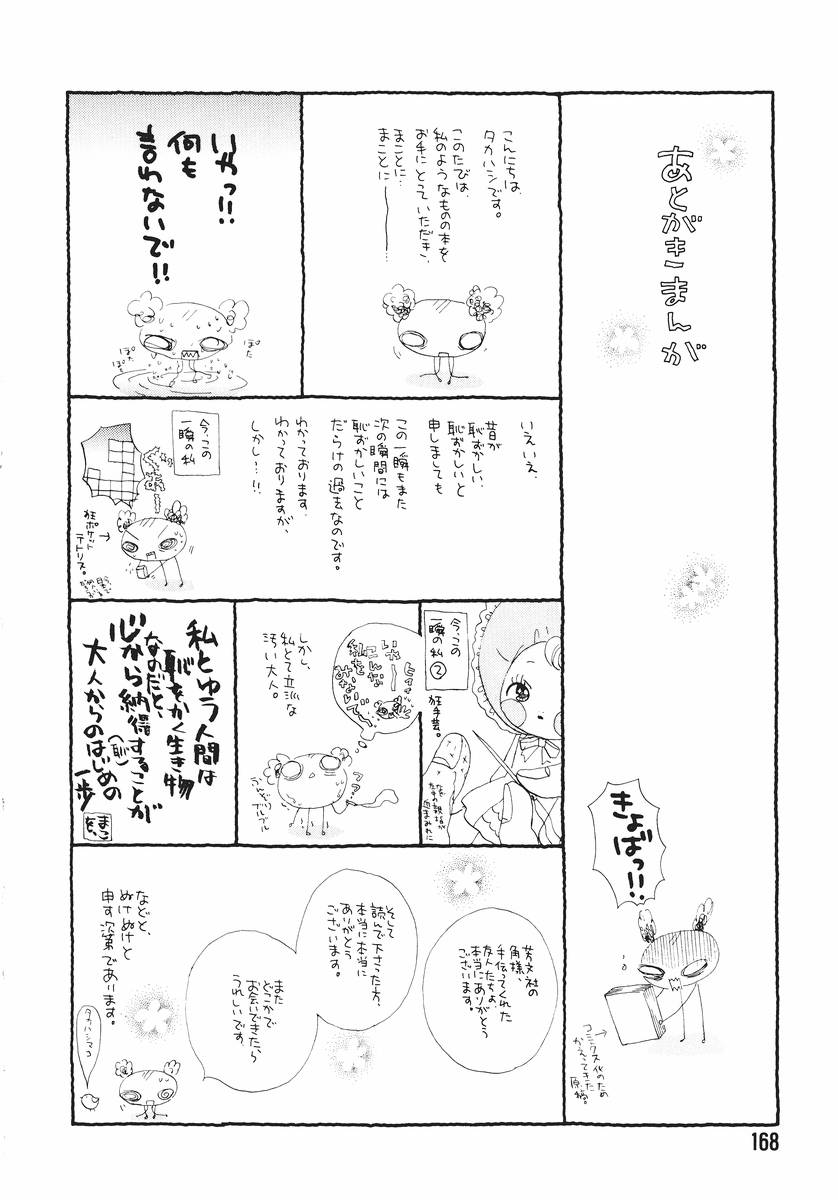 あとがきまんが
きょばっ!!
コミックス化のため
かえってきた
原稿。
こんにちは、
タカハシです。
このたびは、
私のようなものの本を
お手にとっていただき、
まことに…
まことに
いやっ!!
何も
言わないで!!
ぽた
ぽた
ぽた
いえいえ、
昔が
恥ずかしい、
恥ずかしいと
申しましても
この一瞬もまた
次の瞬間には
恥ずかしいこと
だらけの過去なのです。
わかっております、
わかっておりますが、
しかし…!!
今、この
一瞬の私
狂ポケット
テトリス。
今、この
一瞬の私②
狂手芸。
なぜか親指が
血まみれに
いやー
こんな
私を
みないで
しかし、
私とて立派な
汚い大人。
ブルブル
私とゆう人間は
恥をかく生き物
なのだと、
心から納得することが
大人からのはじめの
(恥)
一歩
まこ
を。
芳文社の
角様、
手伝ってくれた
友人たちよ、
本当にありがとう
ございます。
そして
読んで下さった方、
本当に本当に
ありがとう
ございます。
また
どこかで
お会いできたら
うれしいです。
などと、
ぬけぬけと
申す次第であります。
タカハシマコ
168